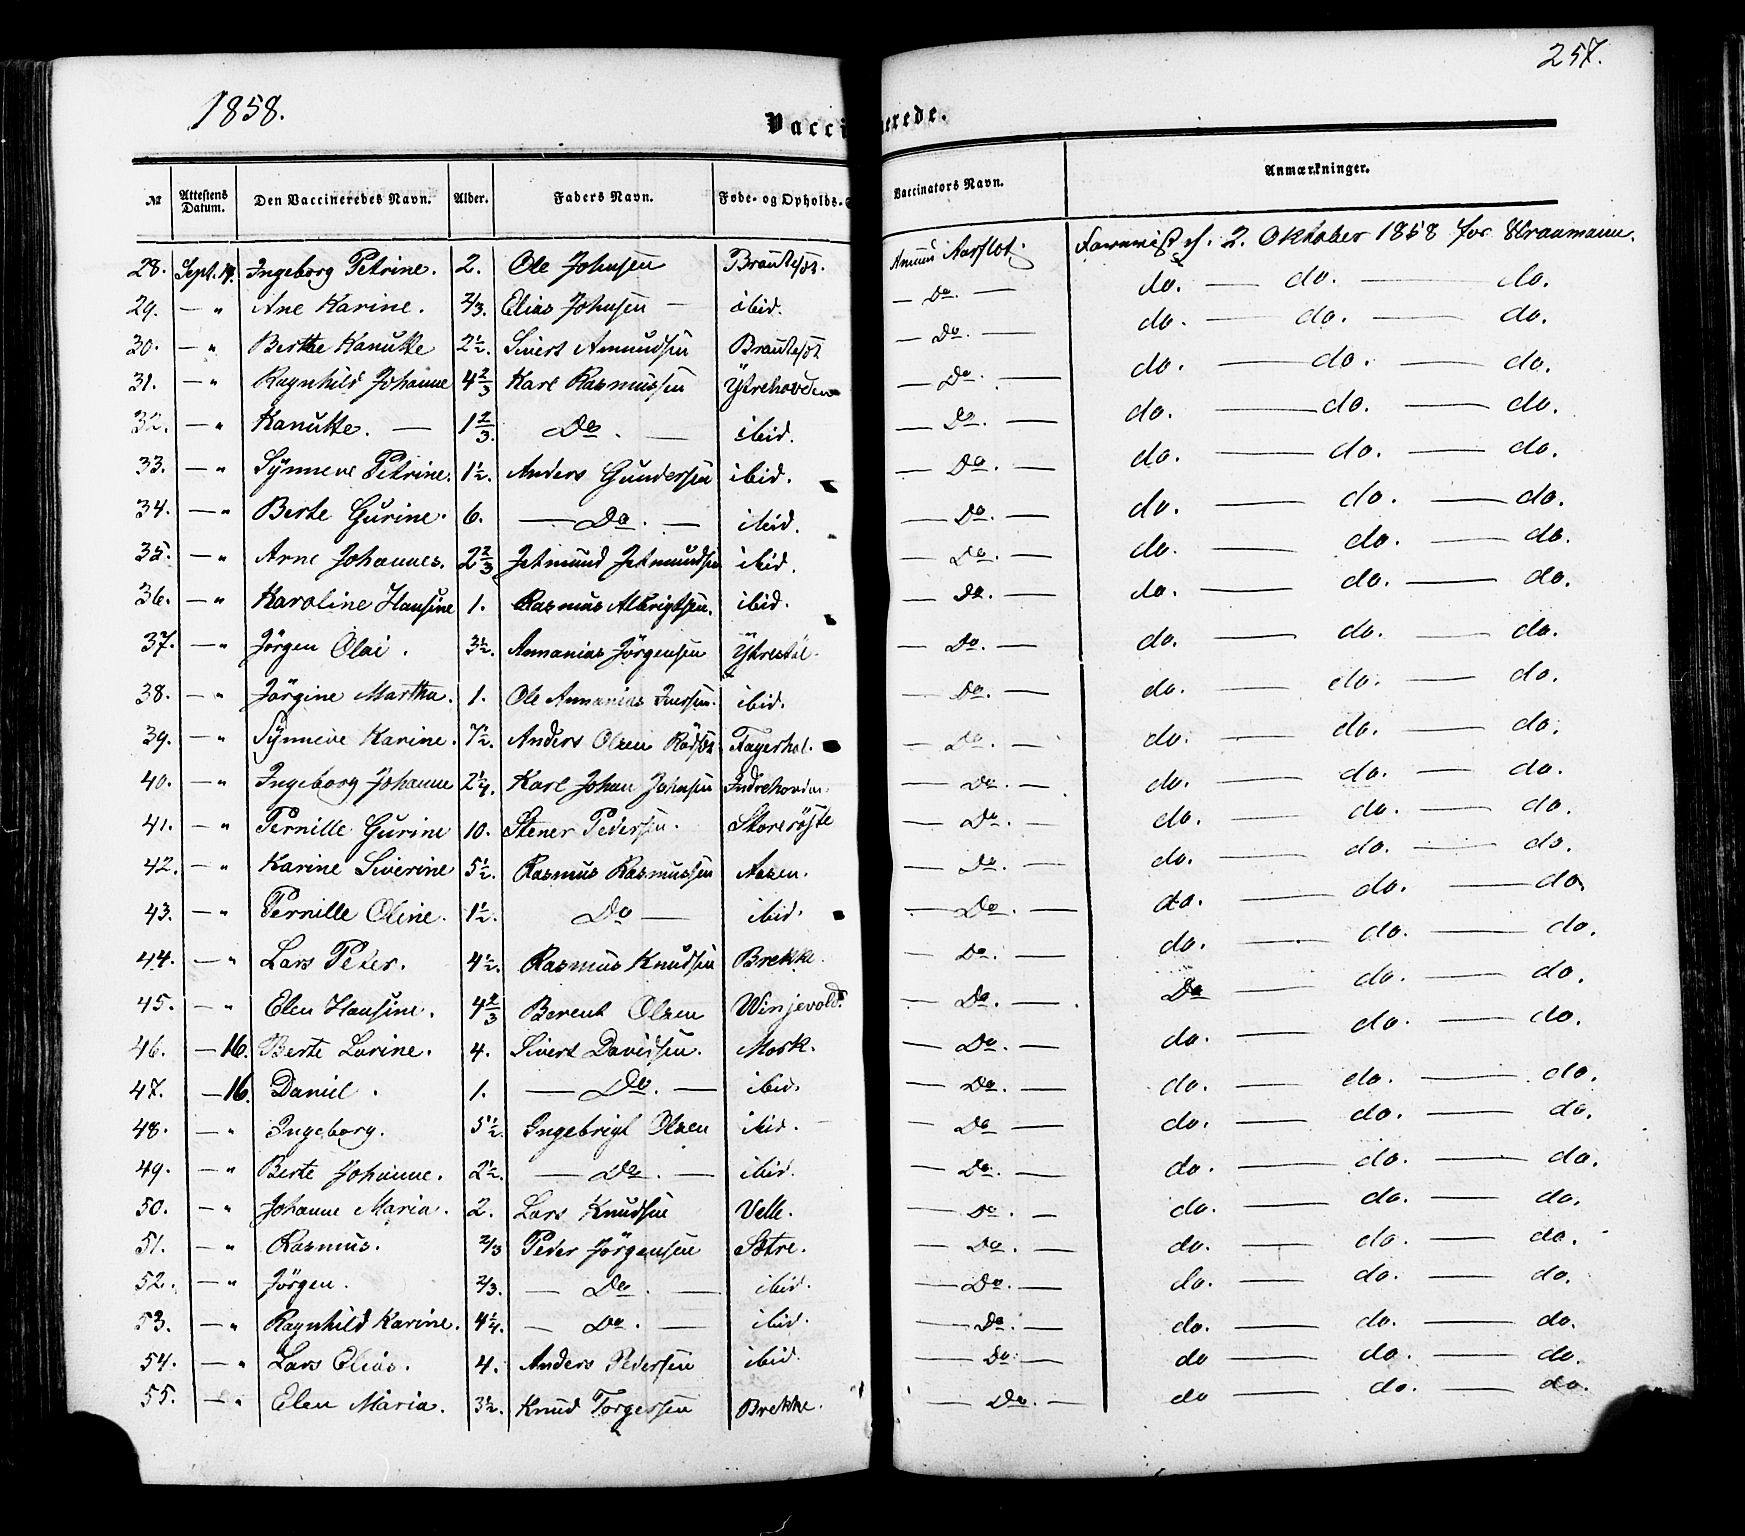 257.
1858.
Vaccinerede.
№ Attestens Datum. Den Vaccineredes Navn. Alder. Faders Navn. Føde- og Opholds- Vaccinators Navn. Anmærkninger.
28. Sept. 14. Ingeborg Petrine. 2. Ole Johnsen Aarflot. 2. Oktober 1858 for
29. — " Ane Karine. 2/3. Elias Johnsen — ibid. — Do. — do. — do. — do.
30. — " Berthe Kanutte 2 1/2. Sivert Amundsen — Do. — do. — do. — do.
31. — " Ragnhild Johanne 4 2/3 Karl Rasmussen Ytrehovden — Do. — do. — do. — do.
32. — " Kanutte. — 1 2/3. Do. — ibid. — Do. — do. — do. — do.
33. — " Synneve Petrine. 1 1/2. Anders Gundersen ibid. — Do. — do. — do. — do.
34. — " Berte Gurine. 6. — Do. — ibid. — Do. — do. — do. — do.
35. — " Arne Johannes. 2 2/3 Jetmund Jetmundsen ibid. — Do. — do. — do. — do.
36. — " Karoline Hansine 1. Rasmus Albrigtsen. ibid. — Do. — do. — do. — do.
37. — " Jörgen Olai. 3 1/2. Annanias Jörgensen Ytrestöl. — Do. — do. — do. — do.
38. — " Jörgine Martha. 1. Ole Annanias Iversen. ibid. — Do. — do. — do. — do.
39. — " Synneve Karine. 7 1/2. Anders Olsen Fagerhol. — Do. — do. — do. — do.
40. — " Ingeborg Johanne 2 1/4. Karl Johan Johnsen Indrehovden. — Do. — do. — do. — do.
41. — " Pernille Gurine 10. Stener Pedersen. Storeröjte — Do. — do. — do. — do.
42. — " Karine Siverine 5 1/2. Rasmus Rasmussen Aasen. — Do. — do. — do. — do.
43. — " Pernille Oline. 1 1/2. Do — ibid. — Do. — do. — do. — do.
44. — " Lars Peter. 4 1/2. Rasmus Knudsen Brekke. — Do. — do. — do. — do.
45. — " Elen Hansine. 4 2/3 Berent Olsen Winjevold. — Do. — Do — do. — do.
46. — 16. Berte Lovine. 4. Sivert Davidsen. Mork. — Do. — do. — do. — do.
47. — 16. Daniel. 1. — Do. — ibid. — Do. — do. — do. — do.
48. — " Ingeborg. 5 1/2. Ingebrigt Olsen ibid. — Do. — do. — do. — do.
49. — " Berte Johanne. 2 1/2. — Do. — ibid. — Do. — do. — do. — do.
50. — " Johanne Maria. 2. Lars Knudsen Velle. — Do. — do. — do. — do.
51. — " Rasmus. 2/3 Peder Jörgensen Sætre. — Do. — do. — do. — do.
52. — " Jörgen. 2/3. — Do. — ibid. — Do. — do. — do. — do.
53. — " Ragnhild Karine. 4 1/4. — Do. — ibid. — Do. — do. — do. — do.
54. — " Lars Elias. 4. Anders Pedersen ibid. — Do. — do — do. — do.
55. — " Elen Maria. 3 1/2. Knud Torgersen Brekke. — Do. — do — do. — do.